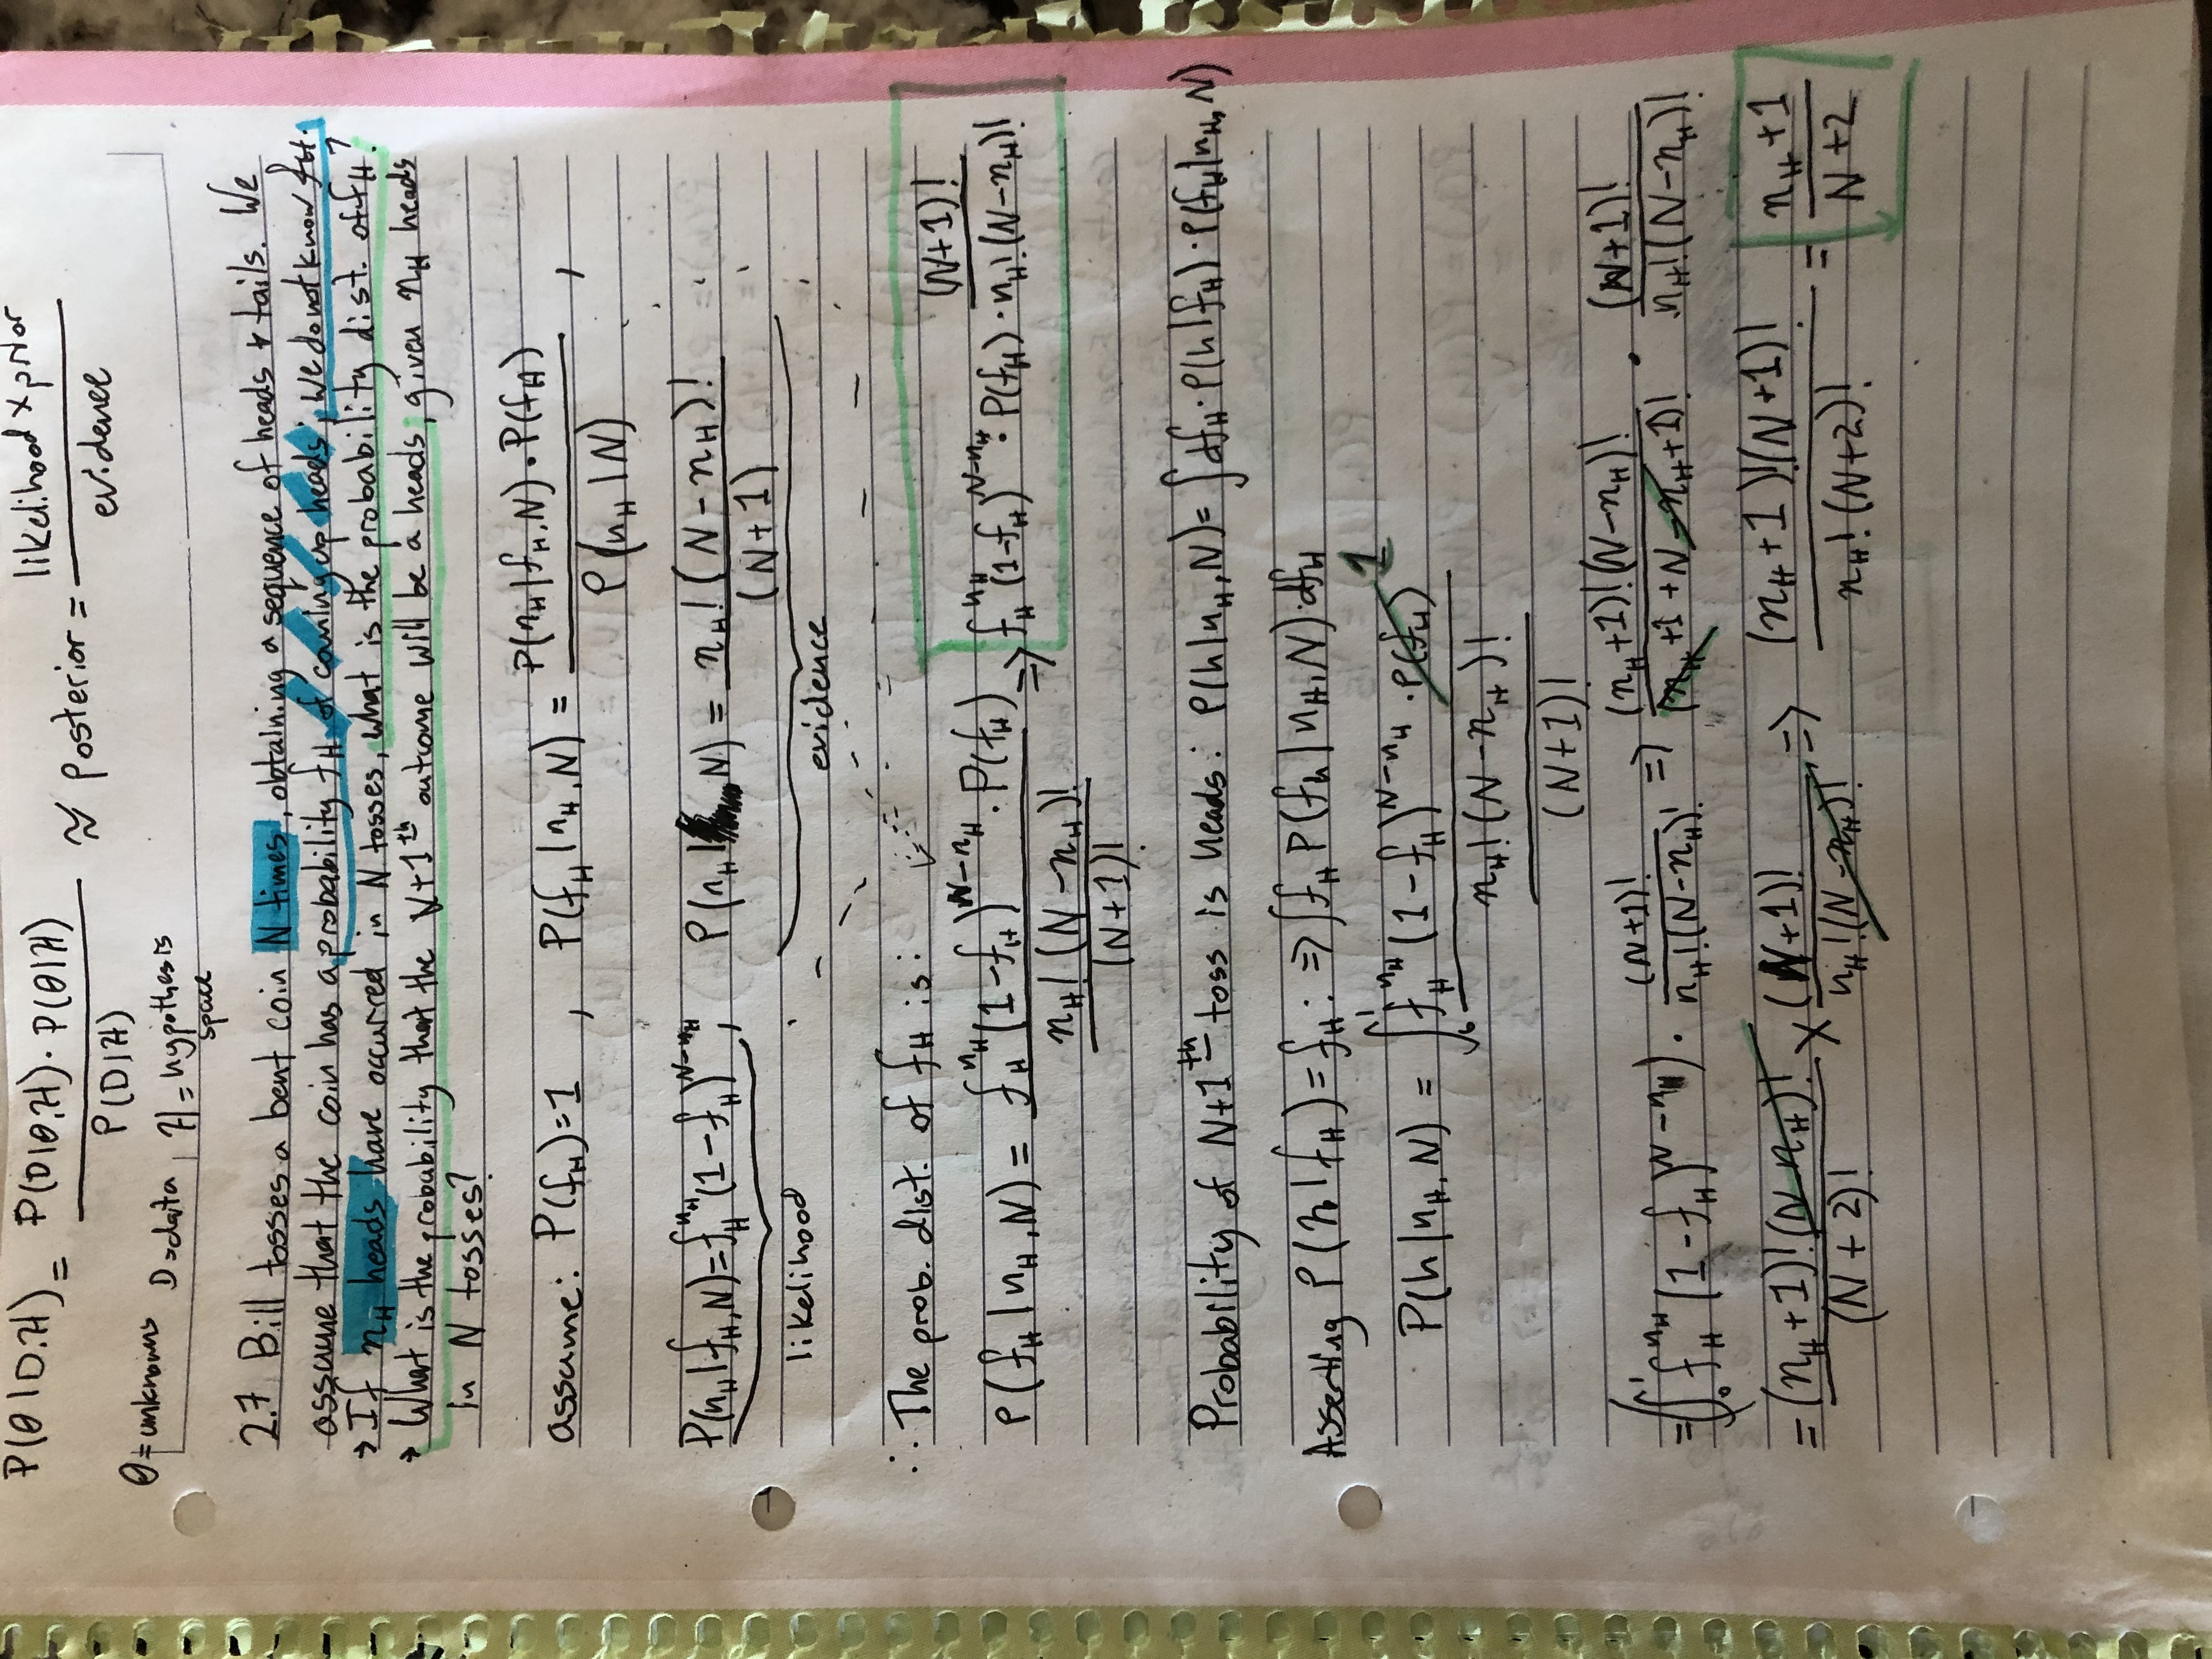 P(θ|D,H) = P(D|θ,H)·P(θ|H) / P(D|H) ≈ posterior = likelihood x prior / evidence
θ = unknowns D=data, H = hypothesis space
2.7 Bill tosses a bent coin N times, obtaining a sequence of heads & tails. We
assume that the coin has a probability f_H of coming up heads; we do not know f_H.
→ If n_H heads have occurred in N tosses, what is the probability dist. of f_H?
→ What is the probability that the N+1^th outcome will be a heads, given n_H heads
in N tosses?
assume: P(f_H)=1 , P(f_H|n_H,N) = P(n_H|f_H,N)·P(f_H) / P(n_H|N) ,
P(n_H|f_H,N)=f_H^n_H (1-f_H)^N-n_H, P(n_H|N) = n_H!(N-n_H)! / (N+1)
likelihood evidence
∴ The prob. dist. of f_H is:
P(f_H|n_H,N) = f_H^n_H (1-f_H)^N-n_H · P(f_H) / (n_H!(N-n_H)! / (N+1)!) => f_H^n_H (1-f_H)^N-n_H · P(f_H) · (N+1)! / n_H!(N-n_H)!
Probability of N+1^th toss is heads: P(h|n_H,N)= ∫df_H·P(h|f_H)·P(f_H|n_H,N)
Asserting P(h|f_H)=f_H: => ∫f_H P(f_h|n_H,N)·df_H
P(h|n_H,N) = ∫_0^1 f_H^n_H (1-f_H)^N-n_H · P(f_H) 1 / (n_H!(N-n_H)! / (N+1)!)
= (∫_0^1 f_H^n_H (1-f_H)^N-n_H) · (N+1)! / n_H!(N-n_H)! => (n_H+1)!(N-n_H)! / (n_H+1+N-n_H+1)! · (N+1)! / n_H!(N-n_H)!
= (n_H+1)!(N-n_H)! / (N+2)! x (N+1)! / n_H!(N-n_H)! => (n_H+1)!(N+1)! / n_H!(N+2)! = n_H+1 / N+2